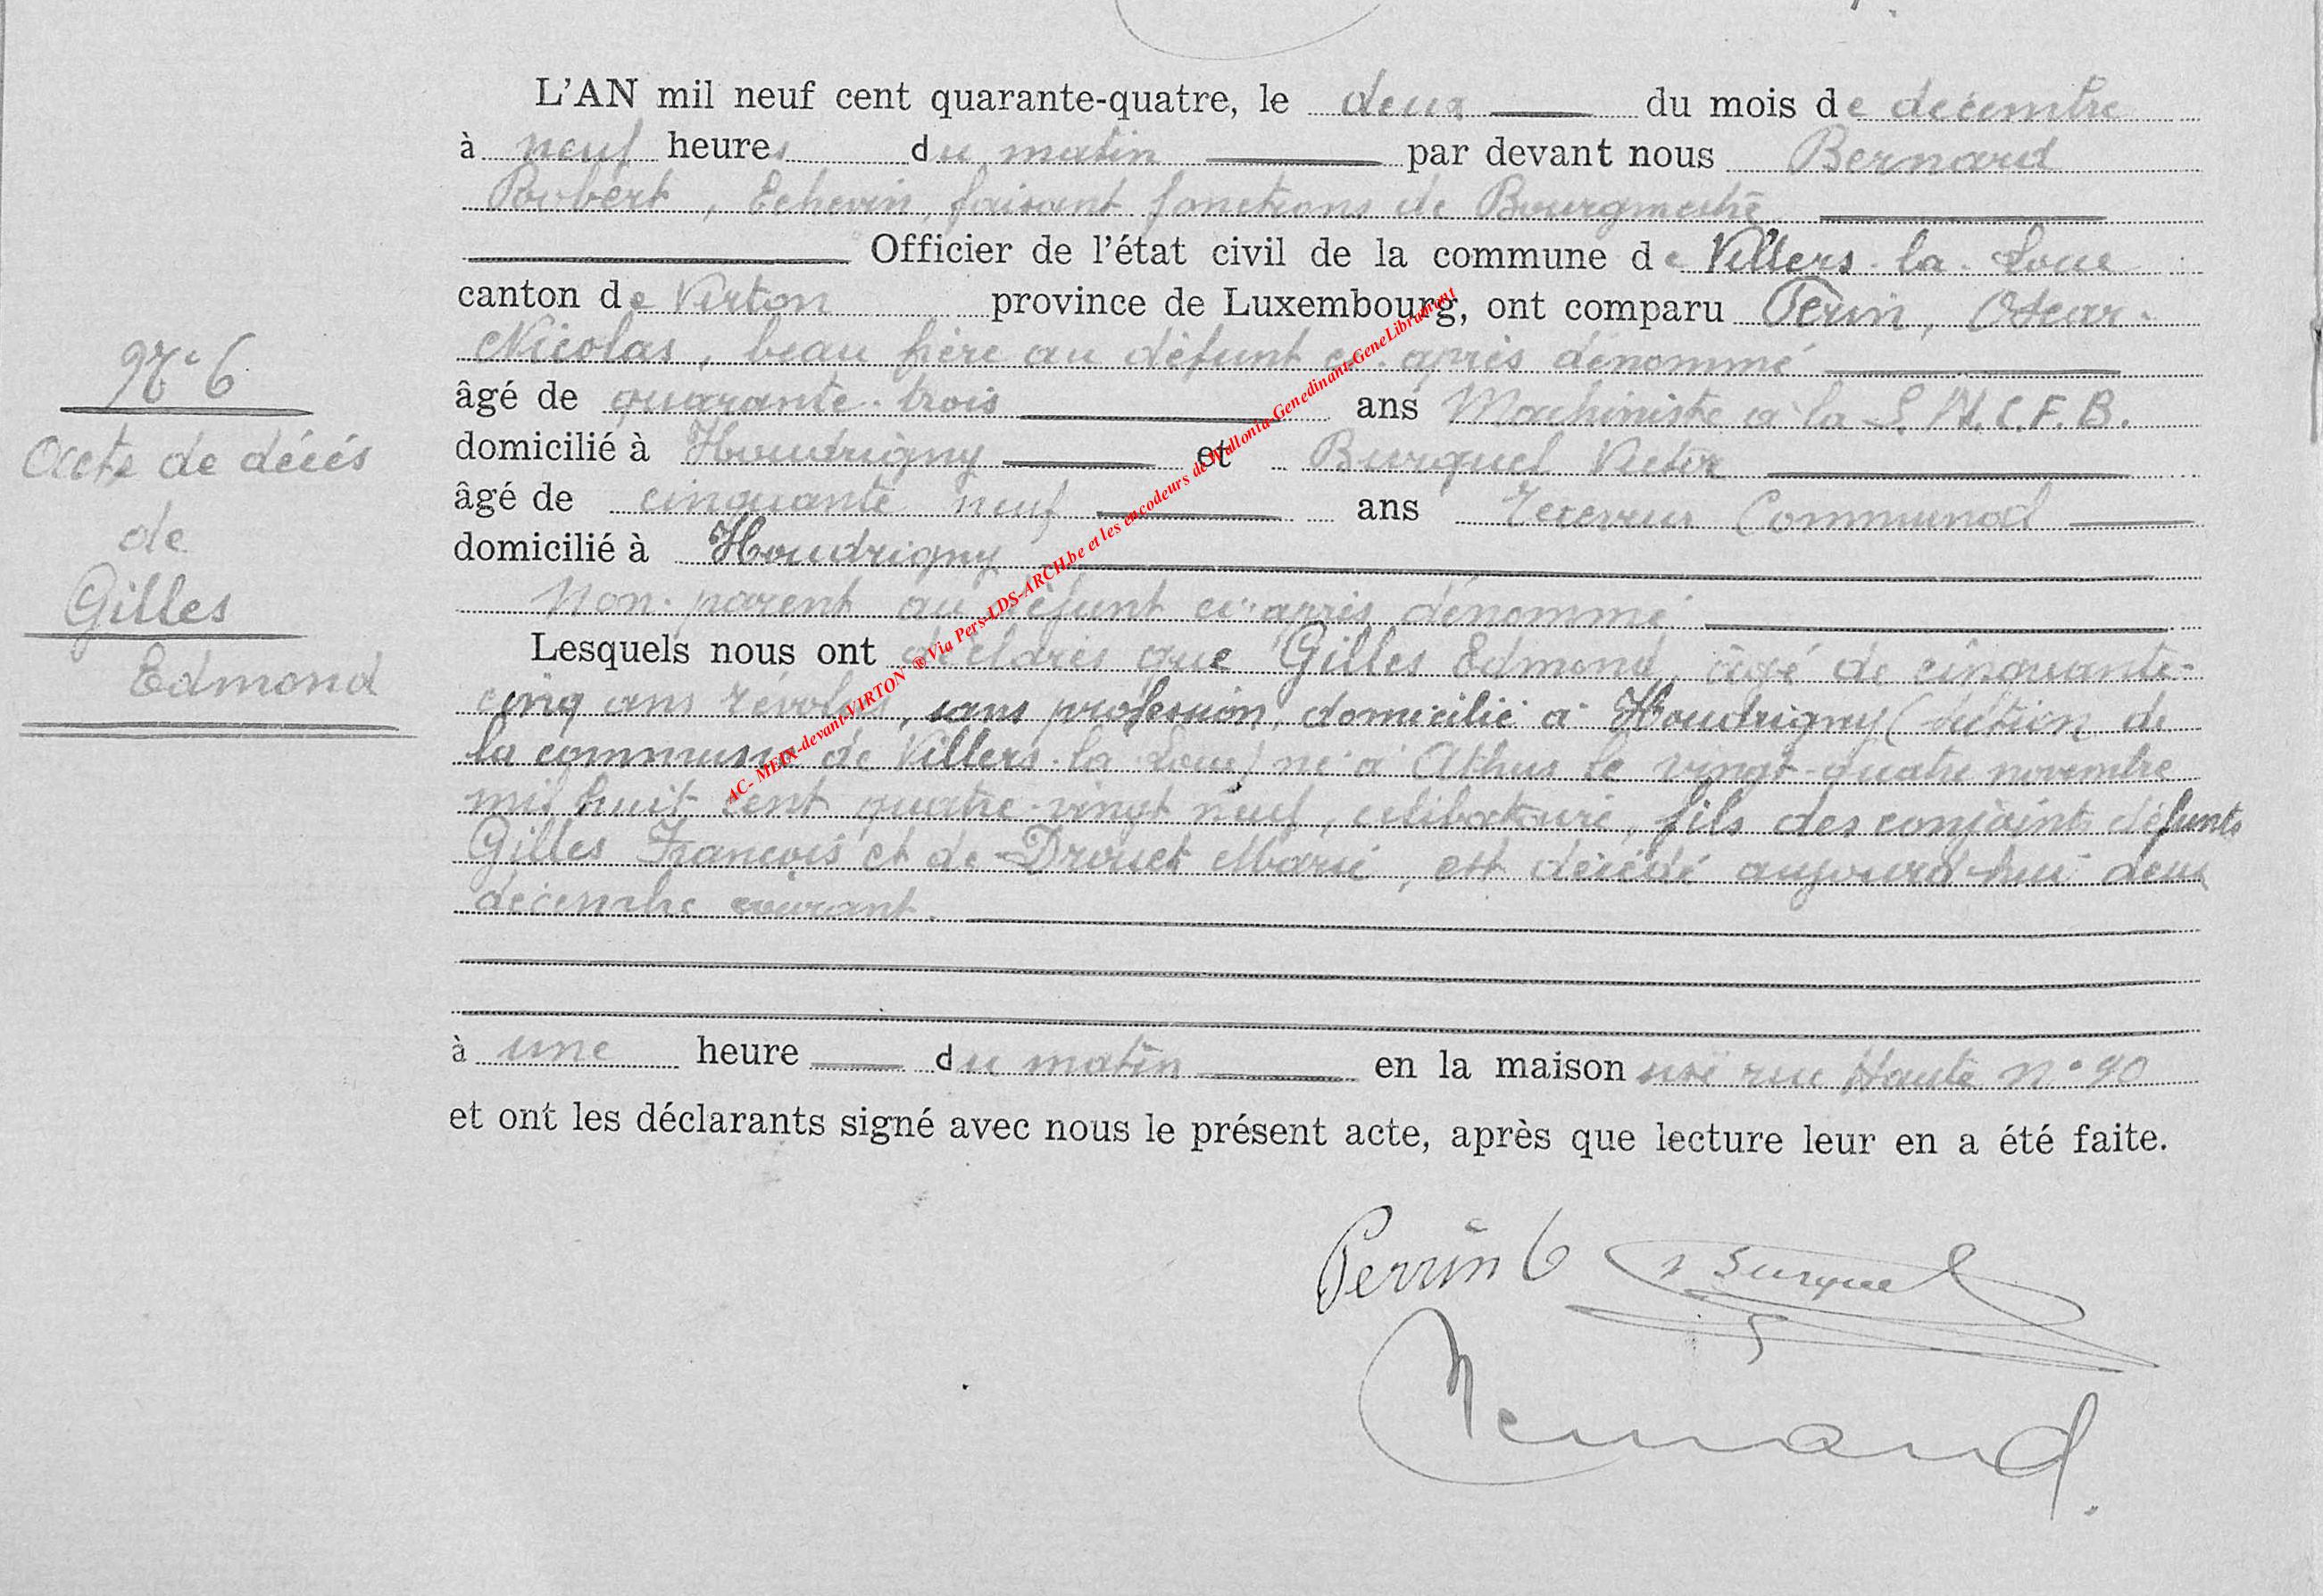 L'AN mil neuf cent quarante-quatre, le deux du mois de décembre
à neuf heures du matin par devant nous Bernard
Robert, Echevin, faisant fonctions de Bourgmestre
Officier de l'état civil de la commune de Villers-la-Loue
canton de Virton province de Luxembourg, ont comparu Perin, Oscar-
Nicolas, beau frère au défunt ci-après dénommé
âgé de quarante-trois ans Machiniste à la S.N.C.F.B.
domicilié à Houdrigny et Burquel Victor
âgé de cinquante neuf ans receveur Communal
domicilié à Houdrigny
Non-parent au défunt ci-après dénommé
Lesquels nous ont déclarés que Gilles Edmond, âgé de cinquante-
cinq ans révolus, sans profession, domicilié à Houdrigny (section de
la commune de Villers-la-Loue) né à Athus le vingt-quatre novembre
mil huit cent quatre-vingt neuf, célibataire, fils des conjoints défunts
Gilles François et de Drouet Marie, est décédé aujourd'hui deux
décembre courant.
à une heure du matin en la maison rue Haute n° 90
et ont les déclarants signé avec nous le présent acte, après que lecture leur en a été faite.
N° 6
Acte de décés
de
Gilles
Edmond
AC- MEIX-devant-VIRTON ® Via Pers-LDS-ARCH.be et les encodeurs de Wallonia-Genedinant-GeneLibramont
Perrin O Burquel
Bernard